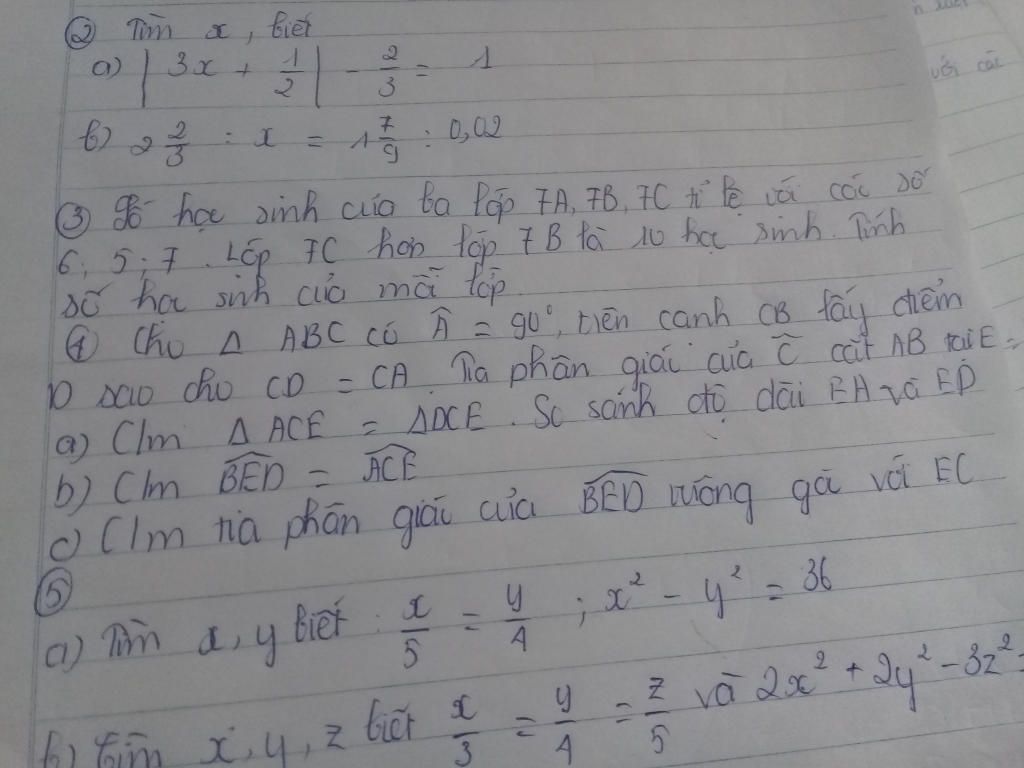 ② Tìm x, biết
a) | 3x + 1/2 | - 2/3 = 1
b) 2 2/3 : x = 1 7/9 : 0,02
③ Số học sinh của ba lớp 7A, 7B, 7C tỉ lệ với các số
6; 5; 7. Lớp 7C hơn lớp 7B là 10 học sinh. Tính
số học sinh của mỗi lớp
④ Cho Δ ABC có Â = 90°, trên cạnh CB lấy điểm
D sao cho CD = CA Tia phân giác của Ĉ cắt AB tại E
a) C/m Δ ACE = ΔDCE. So sánh độ dài EA và ED
b) C/m BED = ACE
c) C/m tia phân giác của BED vuông góc với EC
⑤
a) Tìm x, y biết: x/5 = y/4 ; x² - y² = 36
b) tìm x, y, z biết x/3 = y/4 = z/5 và 2x² + 2y² - 3z²
với các